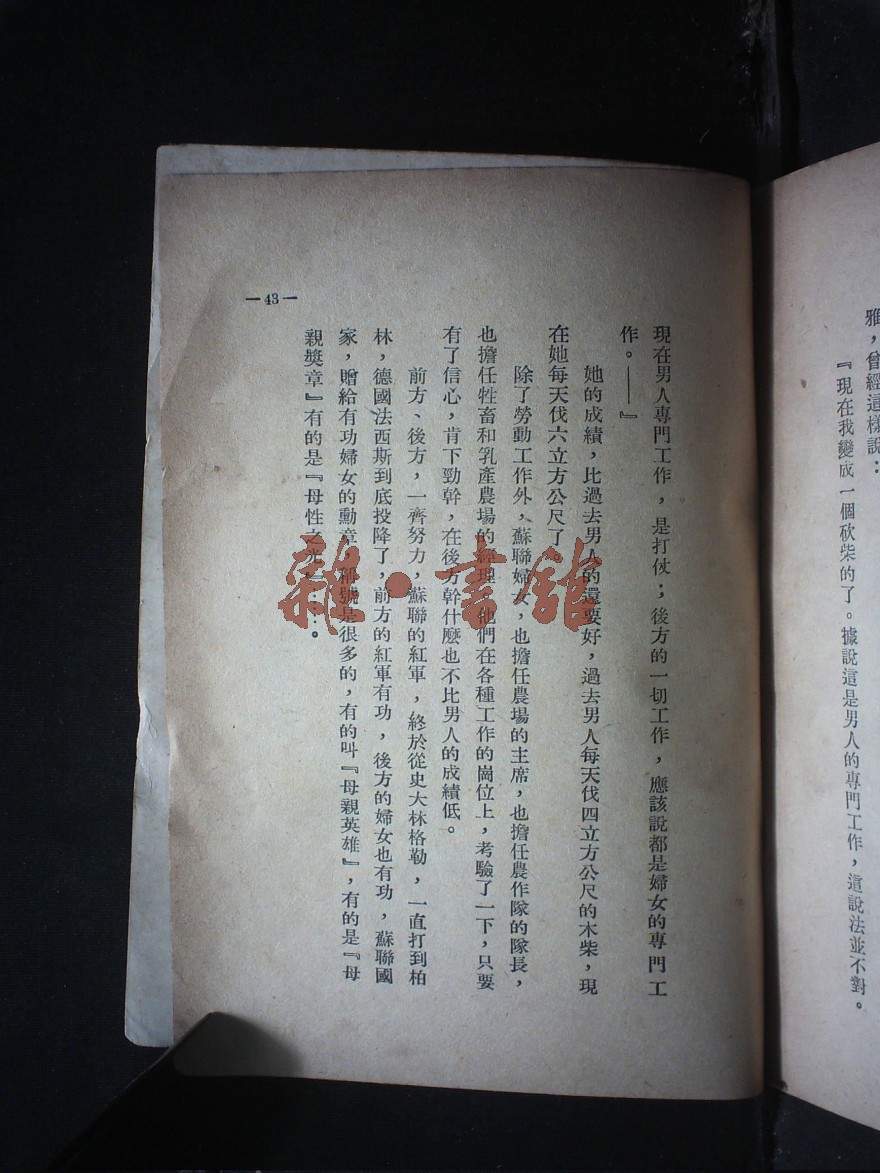 雅，曾經這樣說：
『現在我變成一個砍柴的了。據說這是男人的專門工作，這說法並不對。
現在男人專門工作，是打仗；後方的一切工作，應該說都是婦女的專門工
作。——』
她的成績，比過去男人的還要好，過去男人每天伐四立方公尺的木柴，現
在她每天伐六立方公尺了。
除了勞動工作外，蘇聯婦女，也擔任農場的主席，也擔任農作隊的隊長，
也擔任牲畜和乳產農場的經理，他們在各種工作的崗位上，考驗了一下，只要
有了信心，肯下勁幹，在後方幹什麼也不比男人的成績低。
前方、後方，一齊努力，蘇聯的紅軍，終於從史大林格勒，一直打到柏
林，德國法西斯到底投降了，前方的紅軍有功，後方的婦女也有功，蘇聯國
家，贈給有功婦女的勳章，稱號是很多的，有的叫『母親英雄』，有的是『母
親獎章』有的是『母性之光』…。
—43—
雜·書館